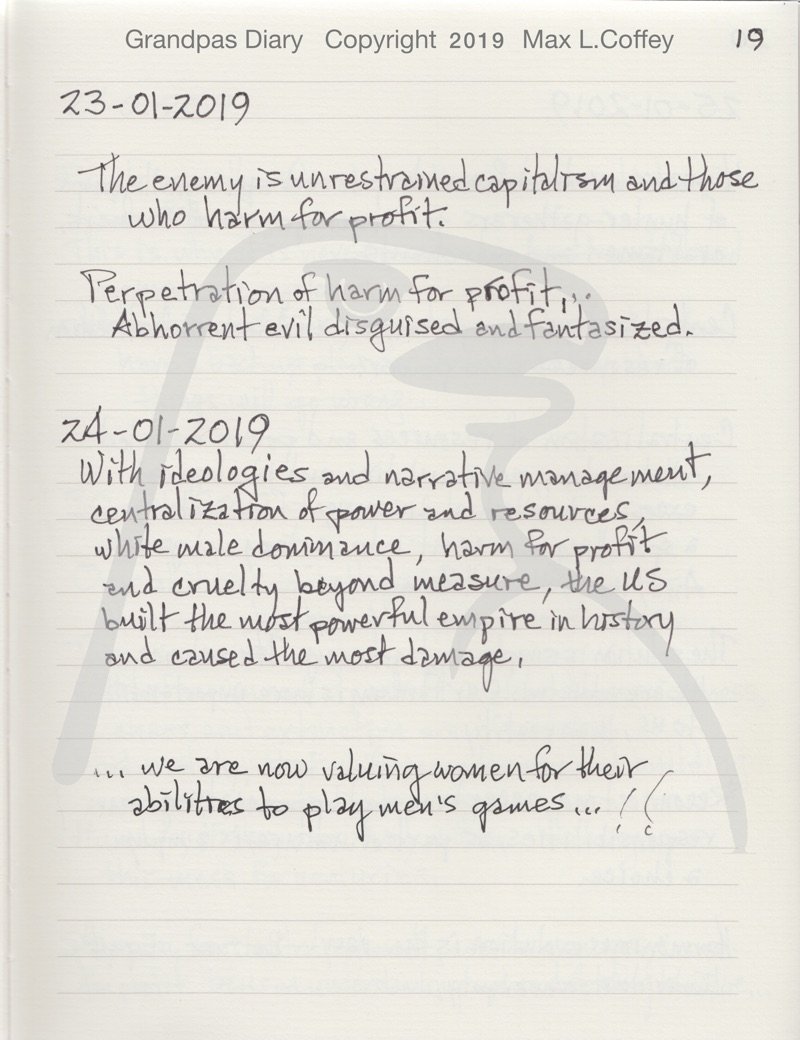 Grandpas Diary Copyright 2019 Max L.Coffey 19
23-01-2019
The enemy is unrestrained capitalism and those
who harm for profit.
Perpetration of harm for profit,..
Abhorrent evil disguised and fantasized.
24-01-2019
With ideologies and narrative management,
centralization of power and resources,
white male dominance, harm for profit
and cruelty beyond measure, the US
built the most powerful empire in history
and caused the most damage.
... we are now valuing women for their
abilities to play men's games... !!